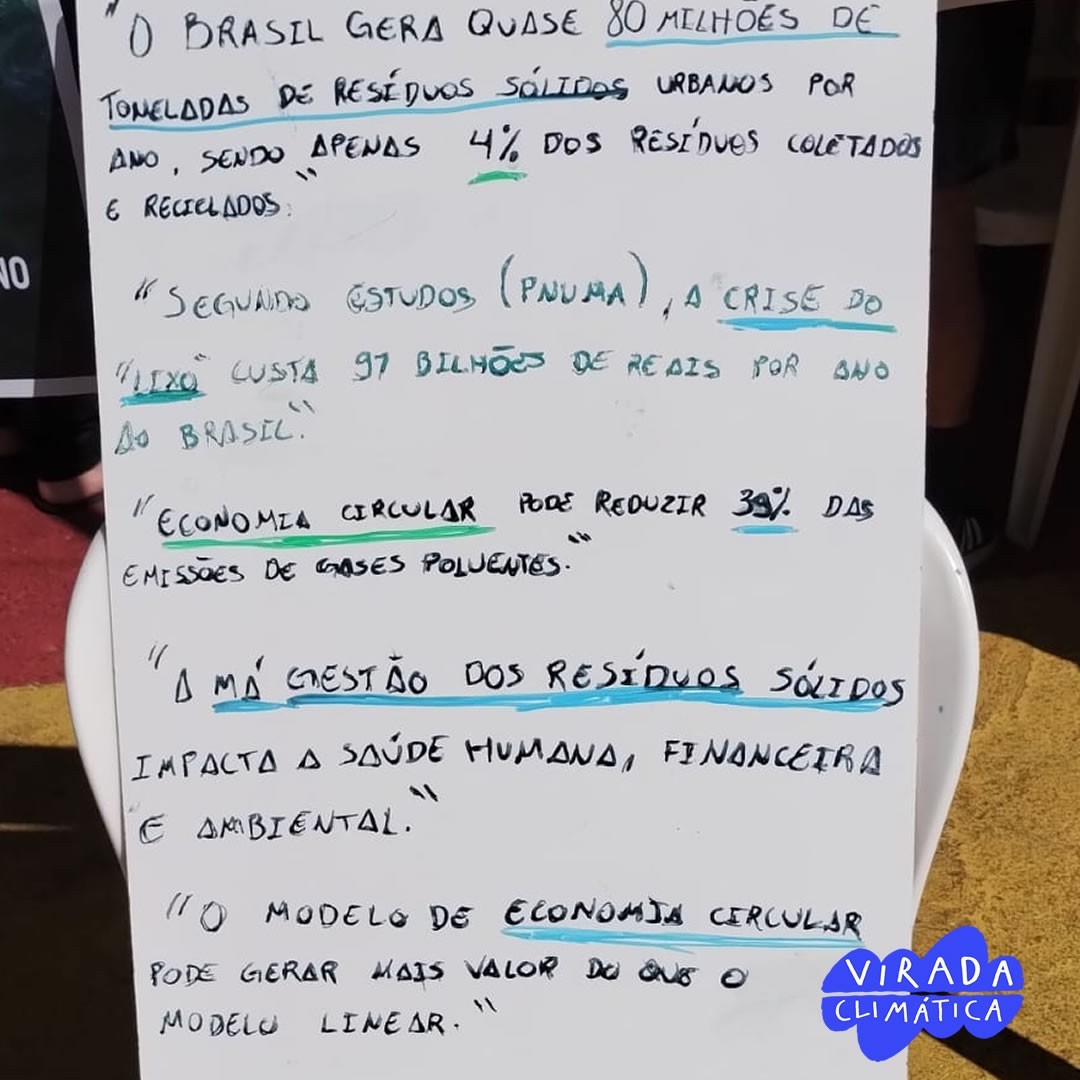 "O BRASIL GERA QUASE 80 MILHÕES DE
TONELADAS DE RESÍDUOS SÓLIDOS URBANOS POR
ANO, SENDO APENAS 4% DOS RESÍDUOS COLETADOS
E RECICLADOS."
NO
"SEGUNDO ESTUDOS (PNUMA), A CRISE DO
"LIXO" CUSTA 97 BILHÕES DE REAIS POR ANO
AO BRASIL."
"ECONOMIA CIRCULAR PODE REDUZIR 39% DAS
EMISSÕES DE GASES POLUENTES."
"A MÁ GESTÃO DOS RESÍDUOS SÓLIDOS
IMPACTA A SAÚDE HUMANA, FINANCEIRA
E AMBIENTAL."
"O MODELO DE ECONOMIA CIRCULAR
PODE GERAR MAIS VALOR DO QUE O
MODELO LINEAR."
VIRADA
CLIMÁTICA